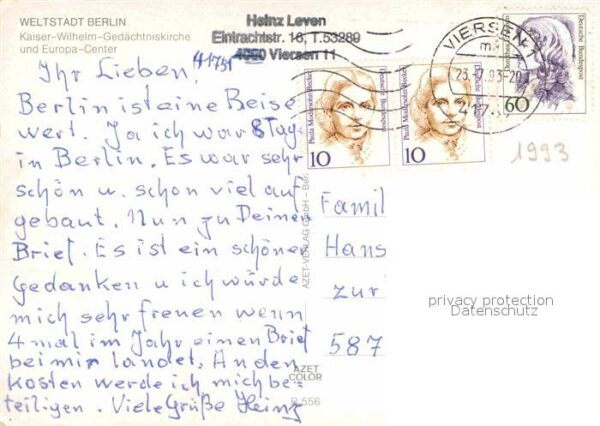 WELTSTADT BERLIN
Kaiser-Wilhelm-Gedächtniskirche
und Europa-Center
Heinz Leven
Eintrachtstr. 16, T.53289
4060 Viersen 11
41751
Ihr Lieben,
Berlin ist eine Reise
wert. Ja ich war 8 Tag
in Berlin. Es war sehr
schön u. schon viel auf
gebaut. Nun zu Deinem
Brief. Es ist ein schöner
gedanken u ich würde
mich sehr freuen wenn
4 mal im Jahr einen Brief
bei mir landet. An den
kosten werde ich mich be=
teiligen. Viele Grüße Heinz
AZET-VERLAG GmbH - Ber
AZET
COLOR
B 556
VIERSEN 1
23.-7.93-20
417
Deutsche Bundespost
60
Paula Modersohn-Becker
Deutsche Bundespost
10
Paula Modersohn-Becker
10
1993
Famil
Hans
zur
587
privacy protection
Datenschutz